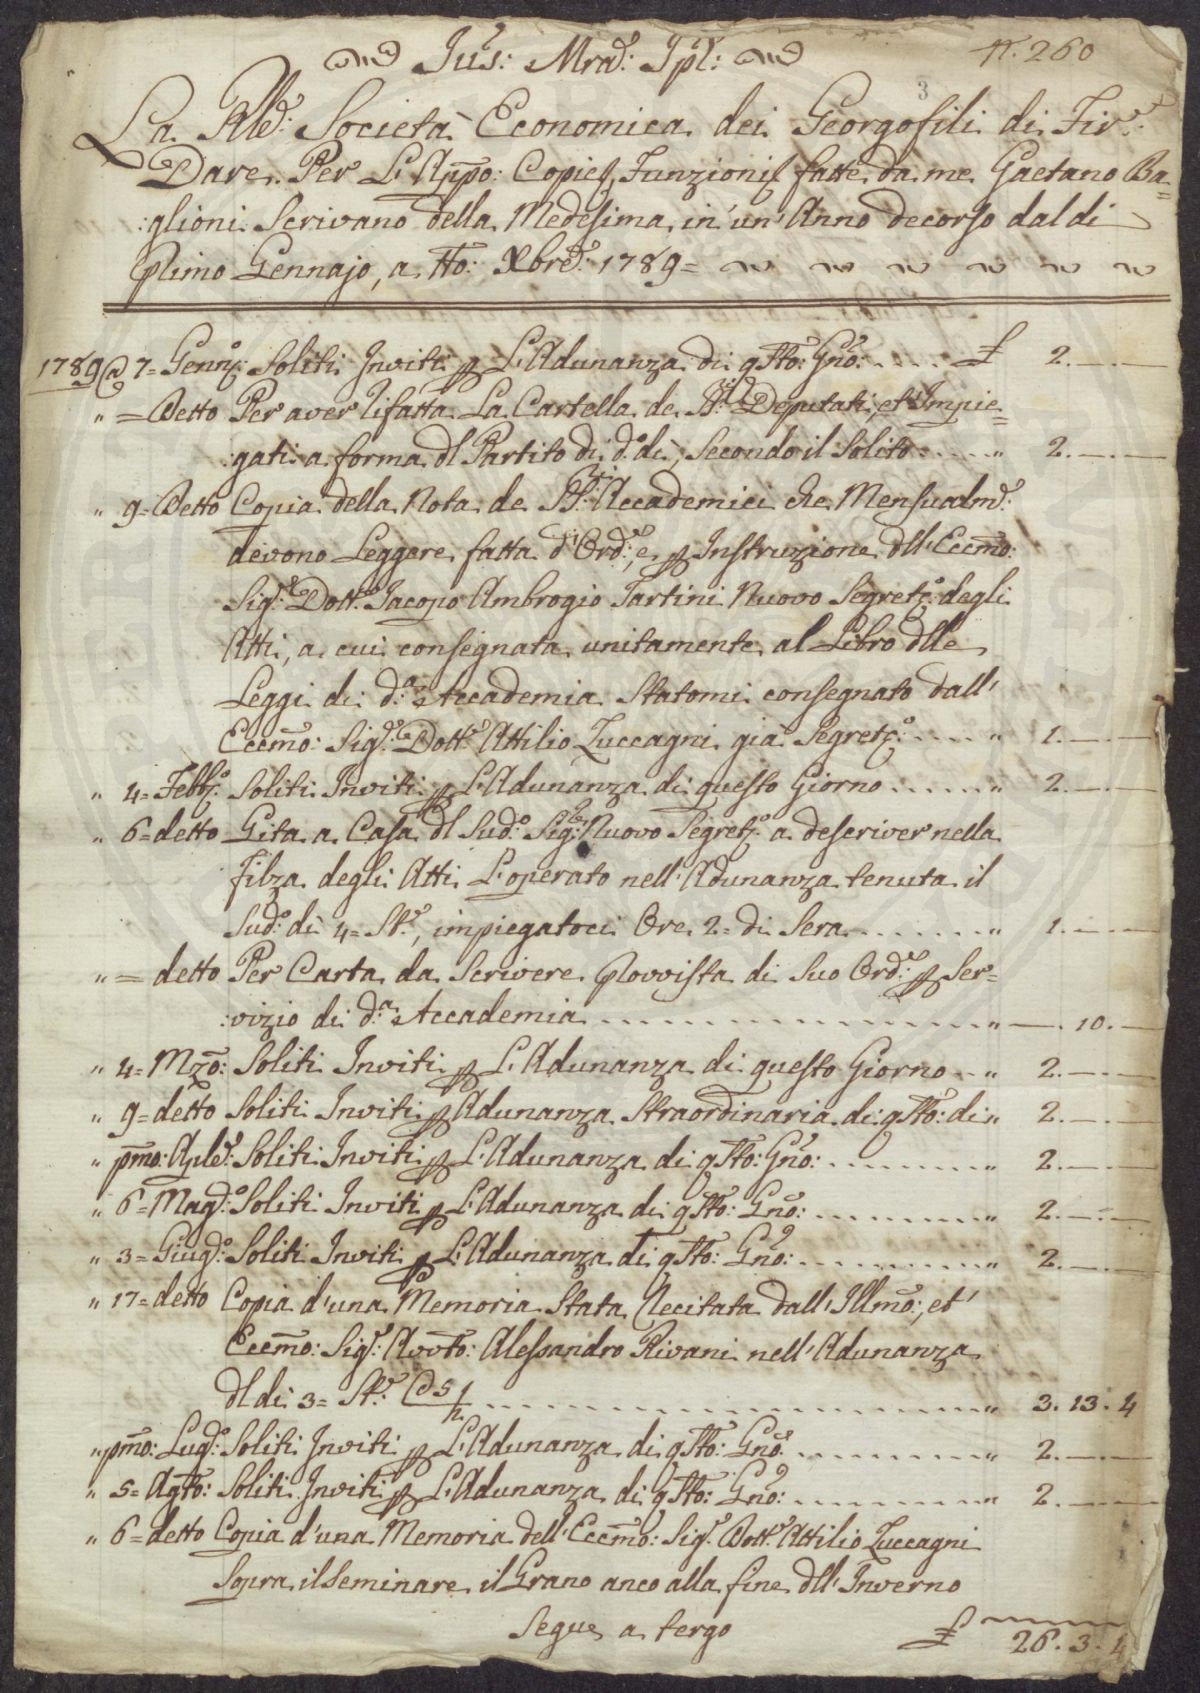 Jus: Mrad: Jpl:
N. 260
3
La Rle: Società Economica dei Georgofili di Fir:
Dare Per L'Appo: Copie, Funzioni fatte da me Gaetano Ba=
:glioni Scrivano della Medesima in un' Anno decorso dal di
Primo Gennajo, a tto: Xbre: 1789=
1789 @ 7= Genn: Soliti Inviti p L'Adunanza di qsto: Gno: .... £ 2.—.—
" = Detto Per aver rifatta La Cartella de SS:ri Deputati, et Impie=
:gati a forma dl Partito di do: dì, Secondo il Solito ..... " 2.—.—
" 9= Detto Copia della Nota de SS:ri Accademici che Mensualme:
devono Leggere fatta d'Ord:e, e p Instruzione dll' Eccmo:
Sigr: Dottr: Jacopo Ambrogio Tartini Nuovo Segreto: degli
Atti, a cui consegnata unitamente al Libro dlle
Leggi di da: Accademia Statomi consegnato dall'
Eccmo: Sigr: Dottr: Attilio Zuccagni già Segreto: ..... " 1.—.—
" 4= Febbo: Soliti Inviti p L'Adunanza di questo Giorno ...... " 2.—.—
" 6= detto Gita a Casa dl Sudo: Sigre: Nuovo Segreto: a descriver nella
Filza degli Atti L'operato nell'Adunanza tenuta il
Sudo: dì 4= St:e, impiegatoci Ore 2= di Sera ........ " 1.—.—
" = detto Per Carta da Scrivere Provvista di Suo Ord:e p Ser=
:vizio di da: Accademia ............... " —. 10.—
" 4= Mzo: Soliti Inviti p L'Adunanza di questo Giorno .. " 2.—.—
" 9= detto Soliti Inviti p Adunanza Straordinaria di qsto: di " 2.—.—
" pmo: Aple: Soliti Inviti p L'Adunanza di qsto: Gno: ......... " 2.—.—
" 6= Mago: Soliti Inviti p L'Adunanza di qsto: Gno: ......... " 2.—.—
" 3= Giugo: Soliti Inviti p L'Adunanza di qsto: Gno: .......... " 2.—.—
" 17= detto Copia d'una Memoria Stata Recitata dall'Illmo:, et'
Eccmo: Sigr: Avvto: Alessandro Rivani nell'Adunanza
dl di 3= St:e ............... " 3. 13. 4
" pmo: Lugo: Soliti Inviti p L'Adunanza di qsto: Gno: .......... " 2.—.—
" 5= Agto: Soliti Inviti p L'Adunanza di qsto: Gno: ........... " 2.—.—
" 6= detto Copia d'una Memoria dell'Eccmo: Sigr: Dottr: Attilio Zuccagni
Sopra il Seminare il Grano anco alla fine dll'Inverno
Segue a tergo £ 26. 3. 4